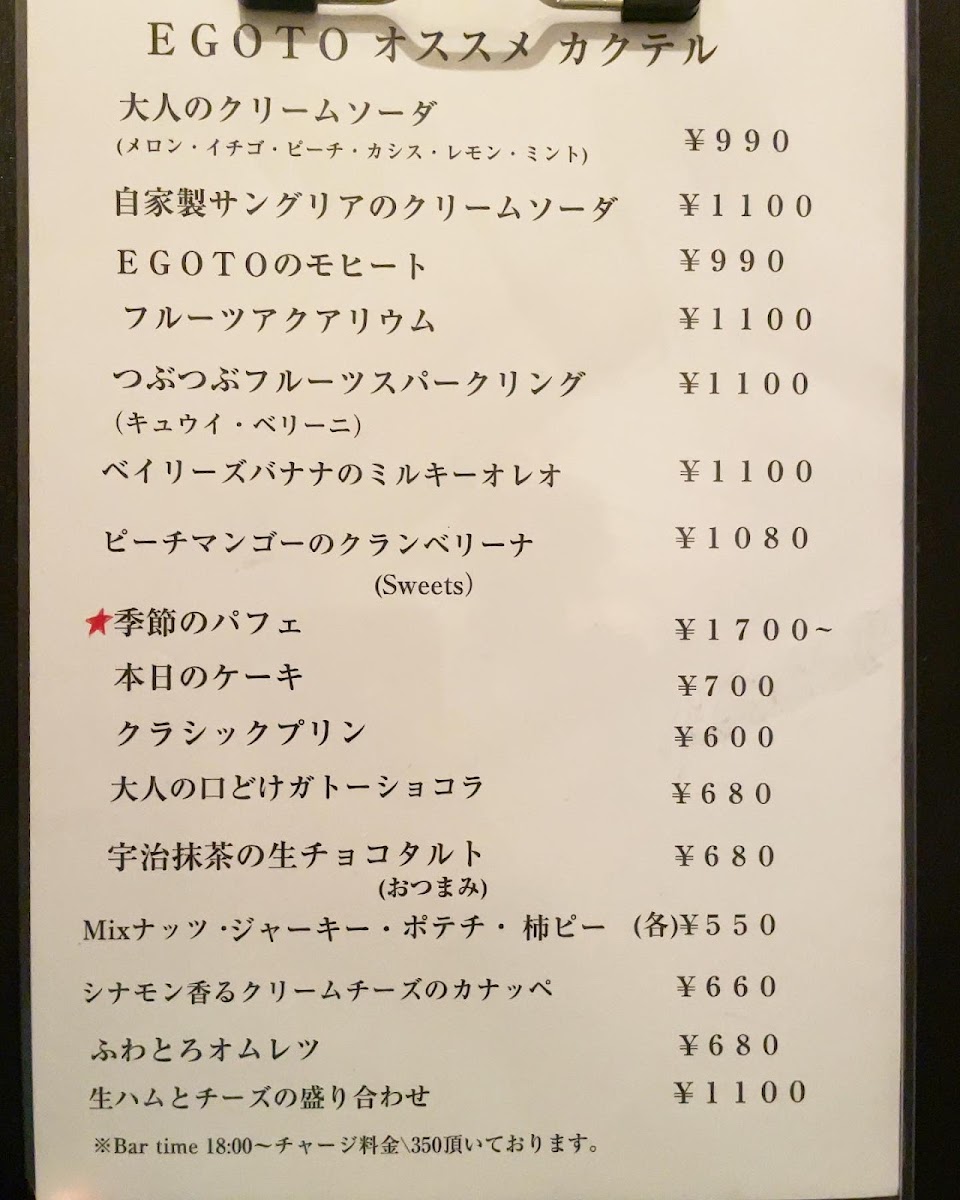 ＥＧＯＴＯ オススメ カクテル
大人のクリームソーダ
(メロン・イチゴ・ピーチ・カシス・レモン・ミント) ￥９９０
自家製サングリアのクリームソーダ ￥１１００
ＥＧＯＴＯのモヒート ￥９９０
フルーツアクアリウム ￥１１００
つぶつぶフルーツスパークリング ￥１１００
（キュウイ・ベリーニ）
ベイリーズバナナのミルキーオレオ ￥１１００
ピーチマンゴーのクランベリーナ ￥１０８０
(Sweets）
★季節のパフェ ￥１７００~
本日のケーキ ￥７００
クラシックプリン ￥６００
大人の口どけガトーショコラ ￥６８０
宇治抹茶の生チョコタルト ￥６８０
(おつまみ)
Mixナッツ・ジャーキー・ポテチ・ 柿ピー (各)￥５５０
シナモン香るクリームチーズのカナッペ ￥６６０
ふわとろオムレツ ￥６８０
生ハムとチーズの盛り合わせ ￥１１００
※Bar time 18:00〜チャージ料金\350頂いております。